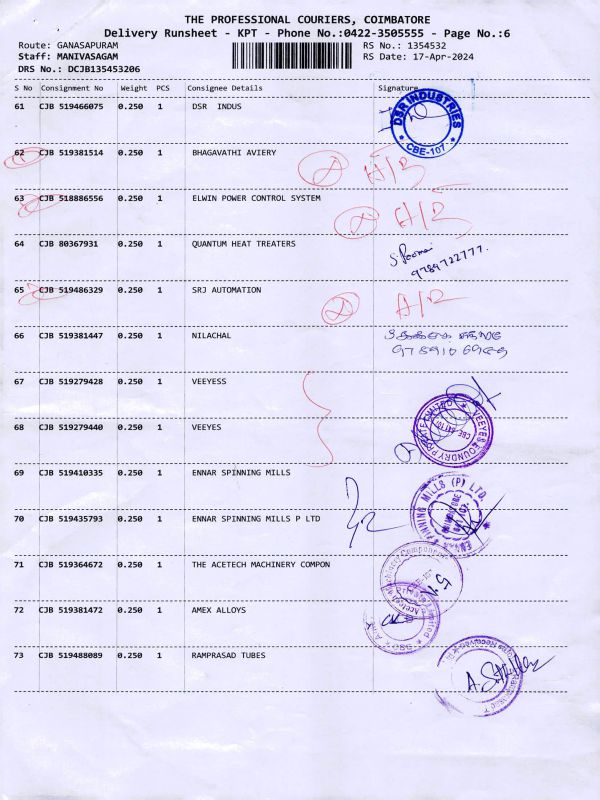 THE PROFESSIONAL COURIERS, COIMBATORE
Delivery Runsheet - KPT - Phone No.:0422-3505555 - Page No.:6
Route: GANASAPURAM RS No.: 1354532
Staff: MANIVASAGAM RS Date: 17-Apr-2024
DRS No.: DCJB135453206
S No Consignment No Weight PCS Consignee Details Signature
61 CJB 519466075 0.250 1 DSR INDUS
DSR INDUSTRIES
* CBE-107 *
62 CJB 519381514 0.250 1 BHAGAVATHI AVIERY
A/R
63 CJB 518886556 0.250 1 ELWIN POWER CONTROL SYSTEM
A/R
64 CJB 80367931 0.250 1 QUANTUM HEAT TREATERS
9789722777.
65 CJB 519486329 0.250 1 SRJ AUTOMATION
A/R
66 CJB 519381447 0.250 1 NILACHAL
67 CJB 519279428 0.250 1 VEEYESS
68 CJB 519279440 0.250 1 VEEYES
VEEYES FOUNDRY PRIVATE LIMITED
69 CJB 519410335 0.250 1 ENNAR SPINNING MILLS
70 CJB 519435793 0.250 1 ENNAR SPINNING MILLS P LTD
ENNAR SPINNING MILLS (P) LTD.
71 CJB 519364672 0.250 1 THE ACETECH MACHINERY COMPON
72 CJB 519381472 0.250 1 AMEX ALLOYS
73 CJB 519488089 0.250 1 RAMPRASAD TUBES